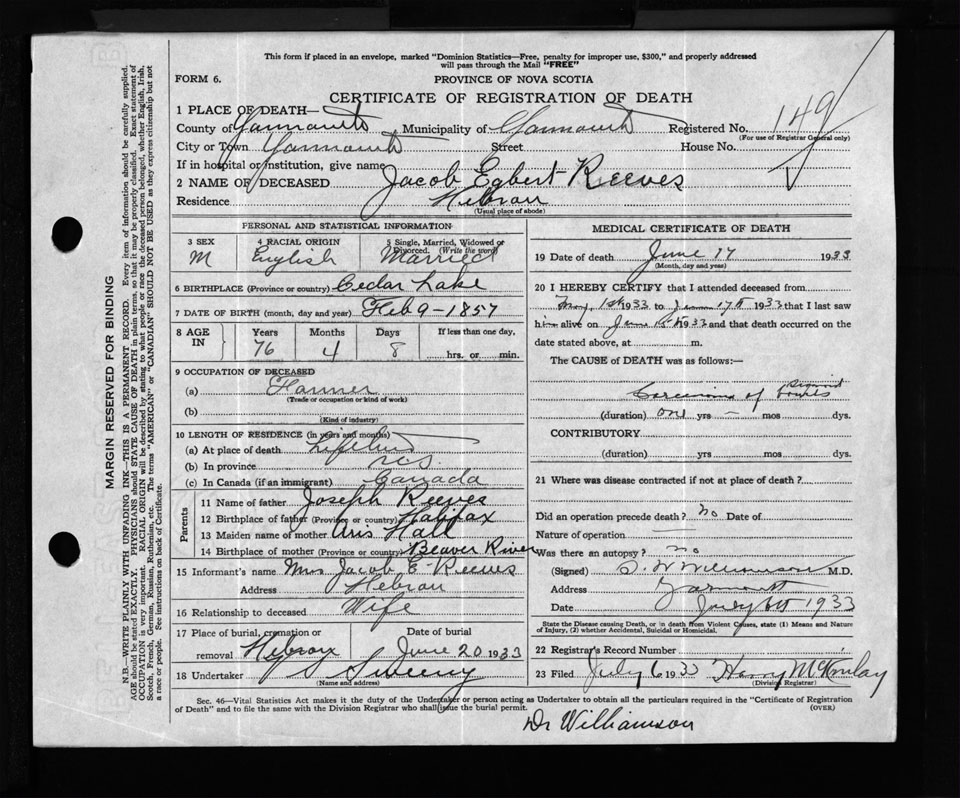 This form if placed in an envelope, marked "Dominion Statistics—Free, penalty for improper use, $300," and properly addressed
will pass through the Mail "FREE"
FORM 6.
PROVINCE OF NOVA SCOTIA
CERTIFICATE OF REGISTRATION OF DEATH
1 PLACE OF DEATH—
County of Yarmouth Municipality of Yarmouth Registered No. 149
(For use of Registrar General only)
City or Town Yarmouth Street House No.
If in hospital or institution, give name
2 NAME OF DECEASED Jacob Egbert Reeves
Residence Hebron
(Usual place of abode)
PERSONAL AND STATISTICAL INFORMATION
3 SEX M
4 RACIAL ORIGIN English
5 Single, Married, Widowed or Divorced. (Write the word) Married
6 BIRTHPLACE (Province or country) Cedar Lake
7 DATE OF BIRTH (month, day and year) Feb 9-1857
8 AGE IN Years Months Days If less than one day,
76 4 8 hrs. or min.
9 OCCUPATION OF DECEASED
(a) Farmer
(Trade or occupation or kind of work)
(b)
(Kind of industry)
10 LENGTH OF RESIDENCE (in years and months)
(a) At place of death
(b) In province N.S.
(c) In Canada (if an immigrant) Canada
Parents
11 Name of father Joseph Reeves
12 Birthplace of father (Province or country) Halifax
13 Maiden name of mother Hall
14 Birthplace of mother (Province or country) Beaver River
15 Informant's name Mrs Jacob E- Reeves
Address Hebron
16 Relationship to deceased Wife
17 Place of burial, cremation or removal Hebron
Date of burial June 20 1933
18 Undertaker Sweeny
(Name and address)
MEDICAL CERTIFICATE OF DEATH
19 Date of death June 17 1933
(Month, day and year)
20 I HEREBY CERTIFY that I attended deceased from
1st 1933 to June 17th 1933 that I last saw
him alive on June 1933 and that death occurred on the
date stated above, at m.
The CAUSE of DEATH was as follows:—
Carcinoma of Sigmoid
(duration) one yrs — mos dys.
CONTRIBUTORY
(duration) yrs mos dys.
21 Where was disease contracted if not at place of death?
Did an operation precede death? no Date of
Nature of operation
Was there an autopsy? no
(Signed) S. W Williamson M.D.
Address Yarmouth
Date July 6th 1933
State the Disease causing Death, or in death from Violent Causes, state (1) Means and Nature
of Injury, (2) whether Accidental, Suicidal or Homicidal.
22 Registrar's Record Number
23 Filed July 6 1933 Harry McKinlay
(Division Registrar)
Sec. 46—Vital Statistics Act makes it the duty of the Undertaker or person acting as Undertaker to obtain all the particulars required in the "Certificate of Registration
of Death" and to file the same with the Division Registrar who shall issue the burial permit. (OVER)
Dr Williamson
MARGIN RESERVED FOR BINDING
N.B.—WRITE PLAINLY WITH UNFADING INK—THIS IS A PERMANENT RECORD. Every item of information should be carefully supplied.
AGE should be stated EXACTLY. PHYSICIANS should STATE CAUSE OF DEATH in plain terms, so that it may be properly classified. Exact statement of
OCCUPATION is very important. RACIAL ORIGIN will be described by stating to what people or race the deceased person belonged, whether English, Irish,
Scotch, French, German, Russian, Ruthenian, etc. The terms "AMERICAN" or "CANADIAN" SHOULD NOT BE USED as they express citizenship but not
a race or people. See instructions on back of Certificate.